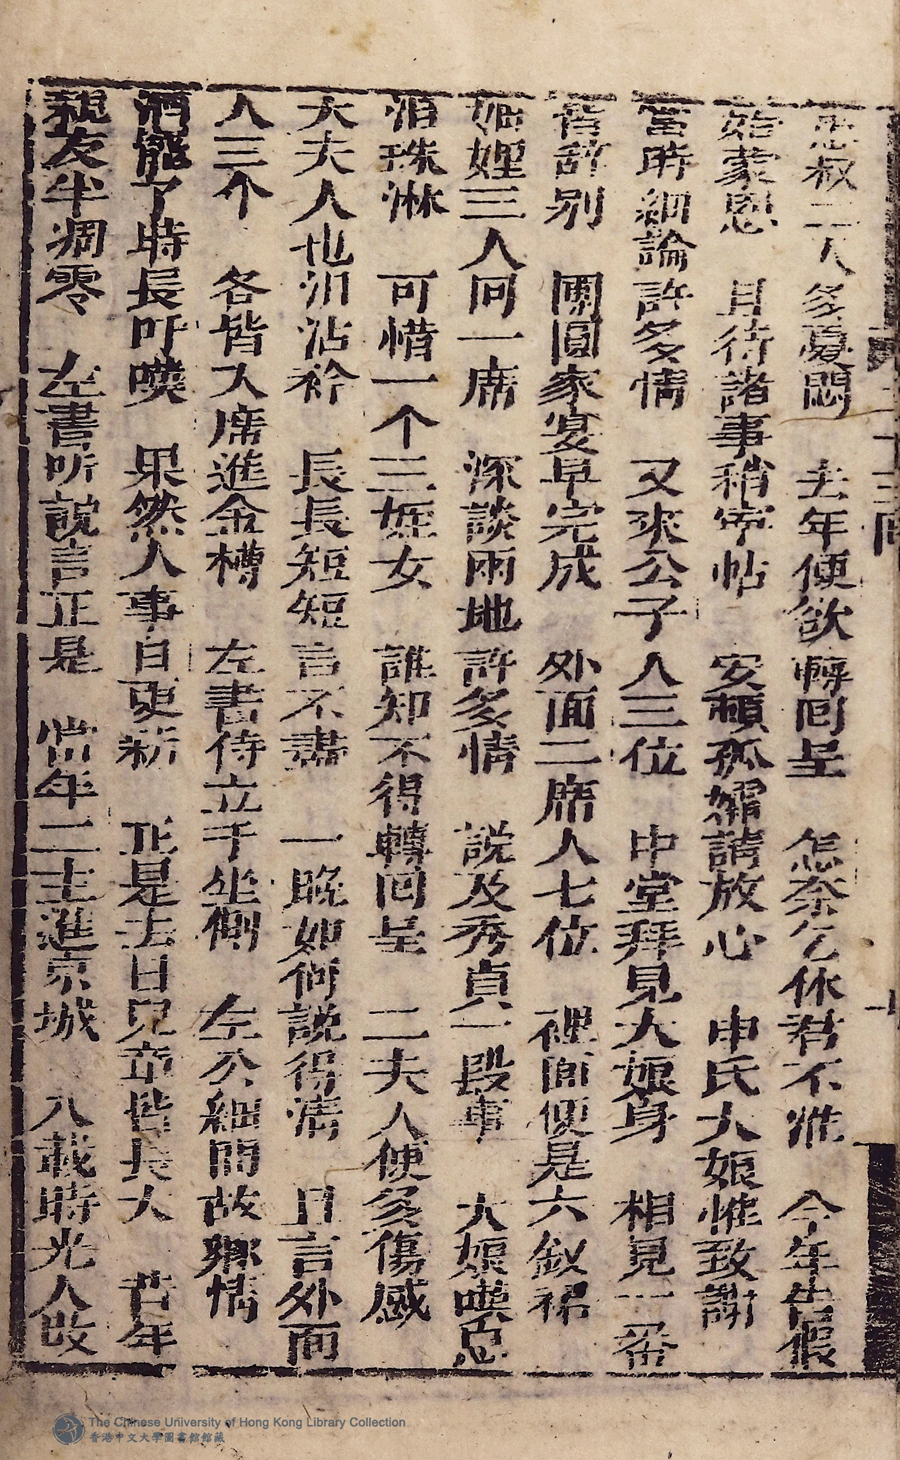 思叔二人多憂悶　去年便欲轉回呈　怎奈乞休君不准　今年告假
始蒙恩　且待諸事稍寧帖　安頓孤孀請放心　申氏大娘惟致謝
當時細論許多情　又來公子人三位　中堂拜見大娘身　相見一番
皆辞别　團圓家宴早完成　外面二席人七位　裡面便是六釵裙
姬娌三人同一席　深談兩地許多情　説及秀貞一段事　大娘嘆息
泪珠淋　可惜一个三姪女　誰知不得轉回呈　二夫人便多傷感
大夫人也泪沾衿　長長短短言不盡　一晚如何説得清　且言外面
人三个　各皆入席進金樽　左書侍立于坐側　左公細問故鄉情
酒罷了時長吁嘆　果然人事自更新　正是去日兒童皆長大　昔年
親友半凋零　左書听說言正是　當年二主進京城　八載時光人改
二十三回
The Chinese University of Hong Kong Library Collection
香港中文大學圖書館館藏